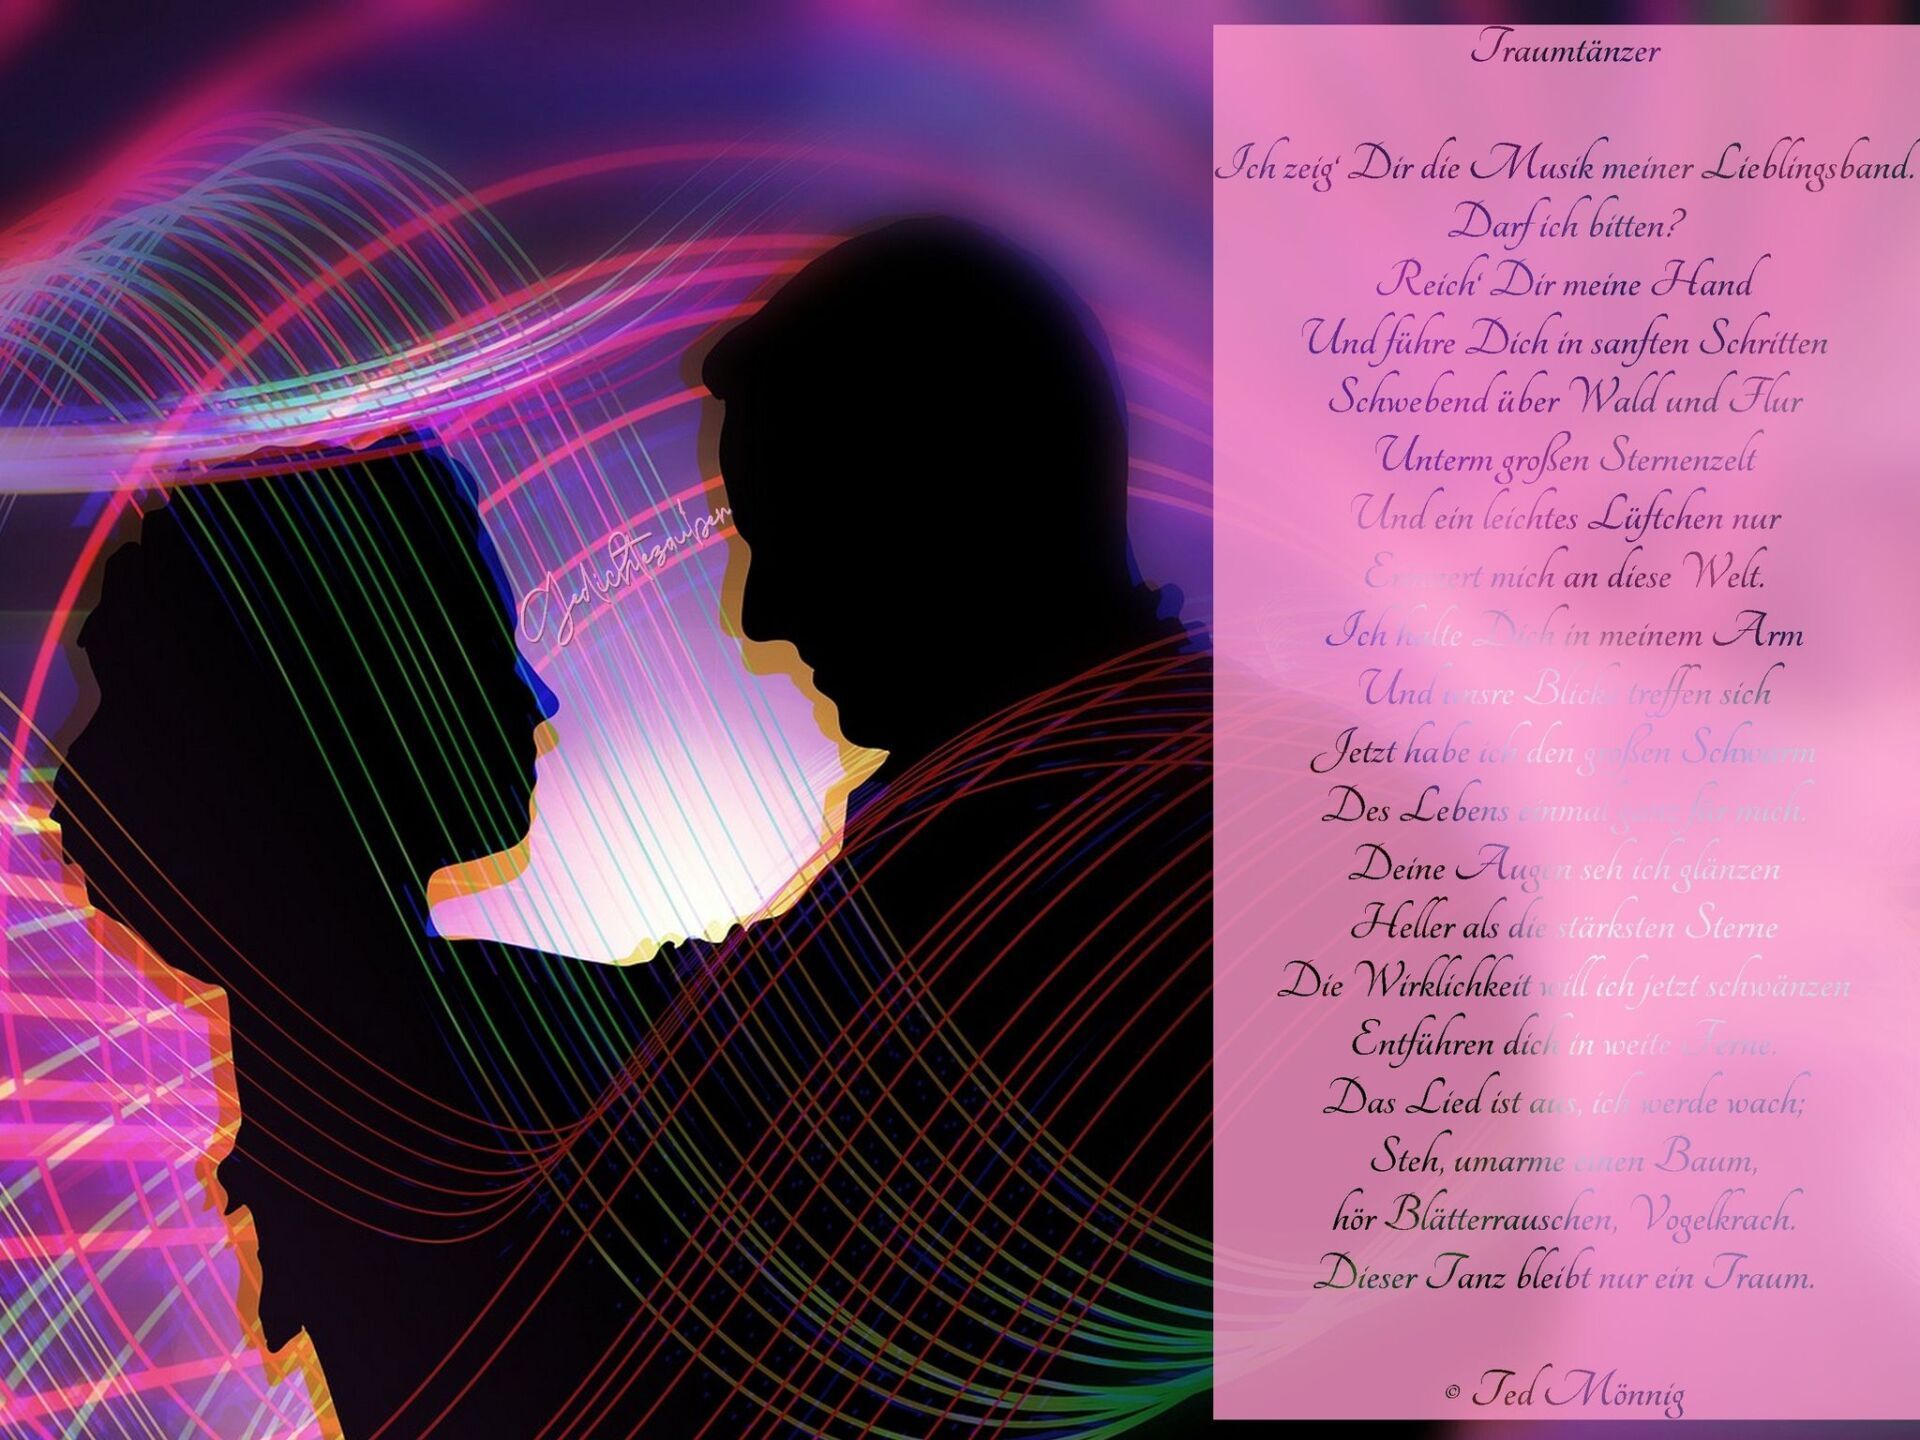 Traumtänzer
Ich zeig' Dir die Musik meiner Lieblingsband.
Darf ich bitten?
Reich' Dir meine Hand
Und führe Dich in sanften Schritten
Schwebend über Wald und Flur
Unterm großen Sternenzelt
Und ein leichtes Lüftchen nur
Erinnert mich an diese Welt.
Ich halte Dich in meinem Arm
Und unsre Blicke treffen sich
Jetzt habe ich den großen Schwarm
Des Lebens einmal ganz für mich.
Deine Augen seh ich glänzen
Heller als die stärksten Sterne
Die Wirklichkeit will ich jetzt schwänzen
Entführen dich in weite Ferne.
Das Lied ist aus, ich werde wach;
Steh, umarme einen Baum,
hör Blätterrauschen, Vogelkrach.
Dieser Tanz bleibt nur ein Traum.
© Ted Mönnig